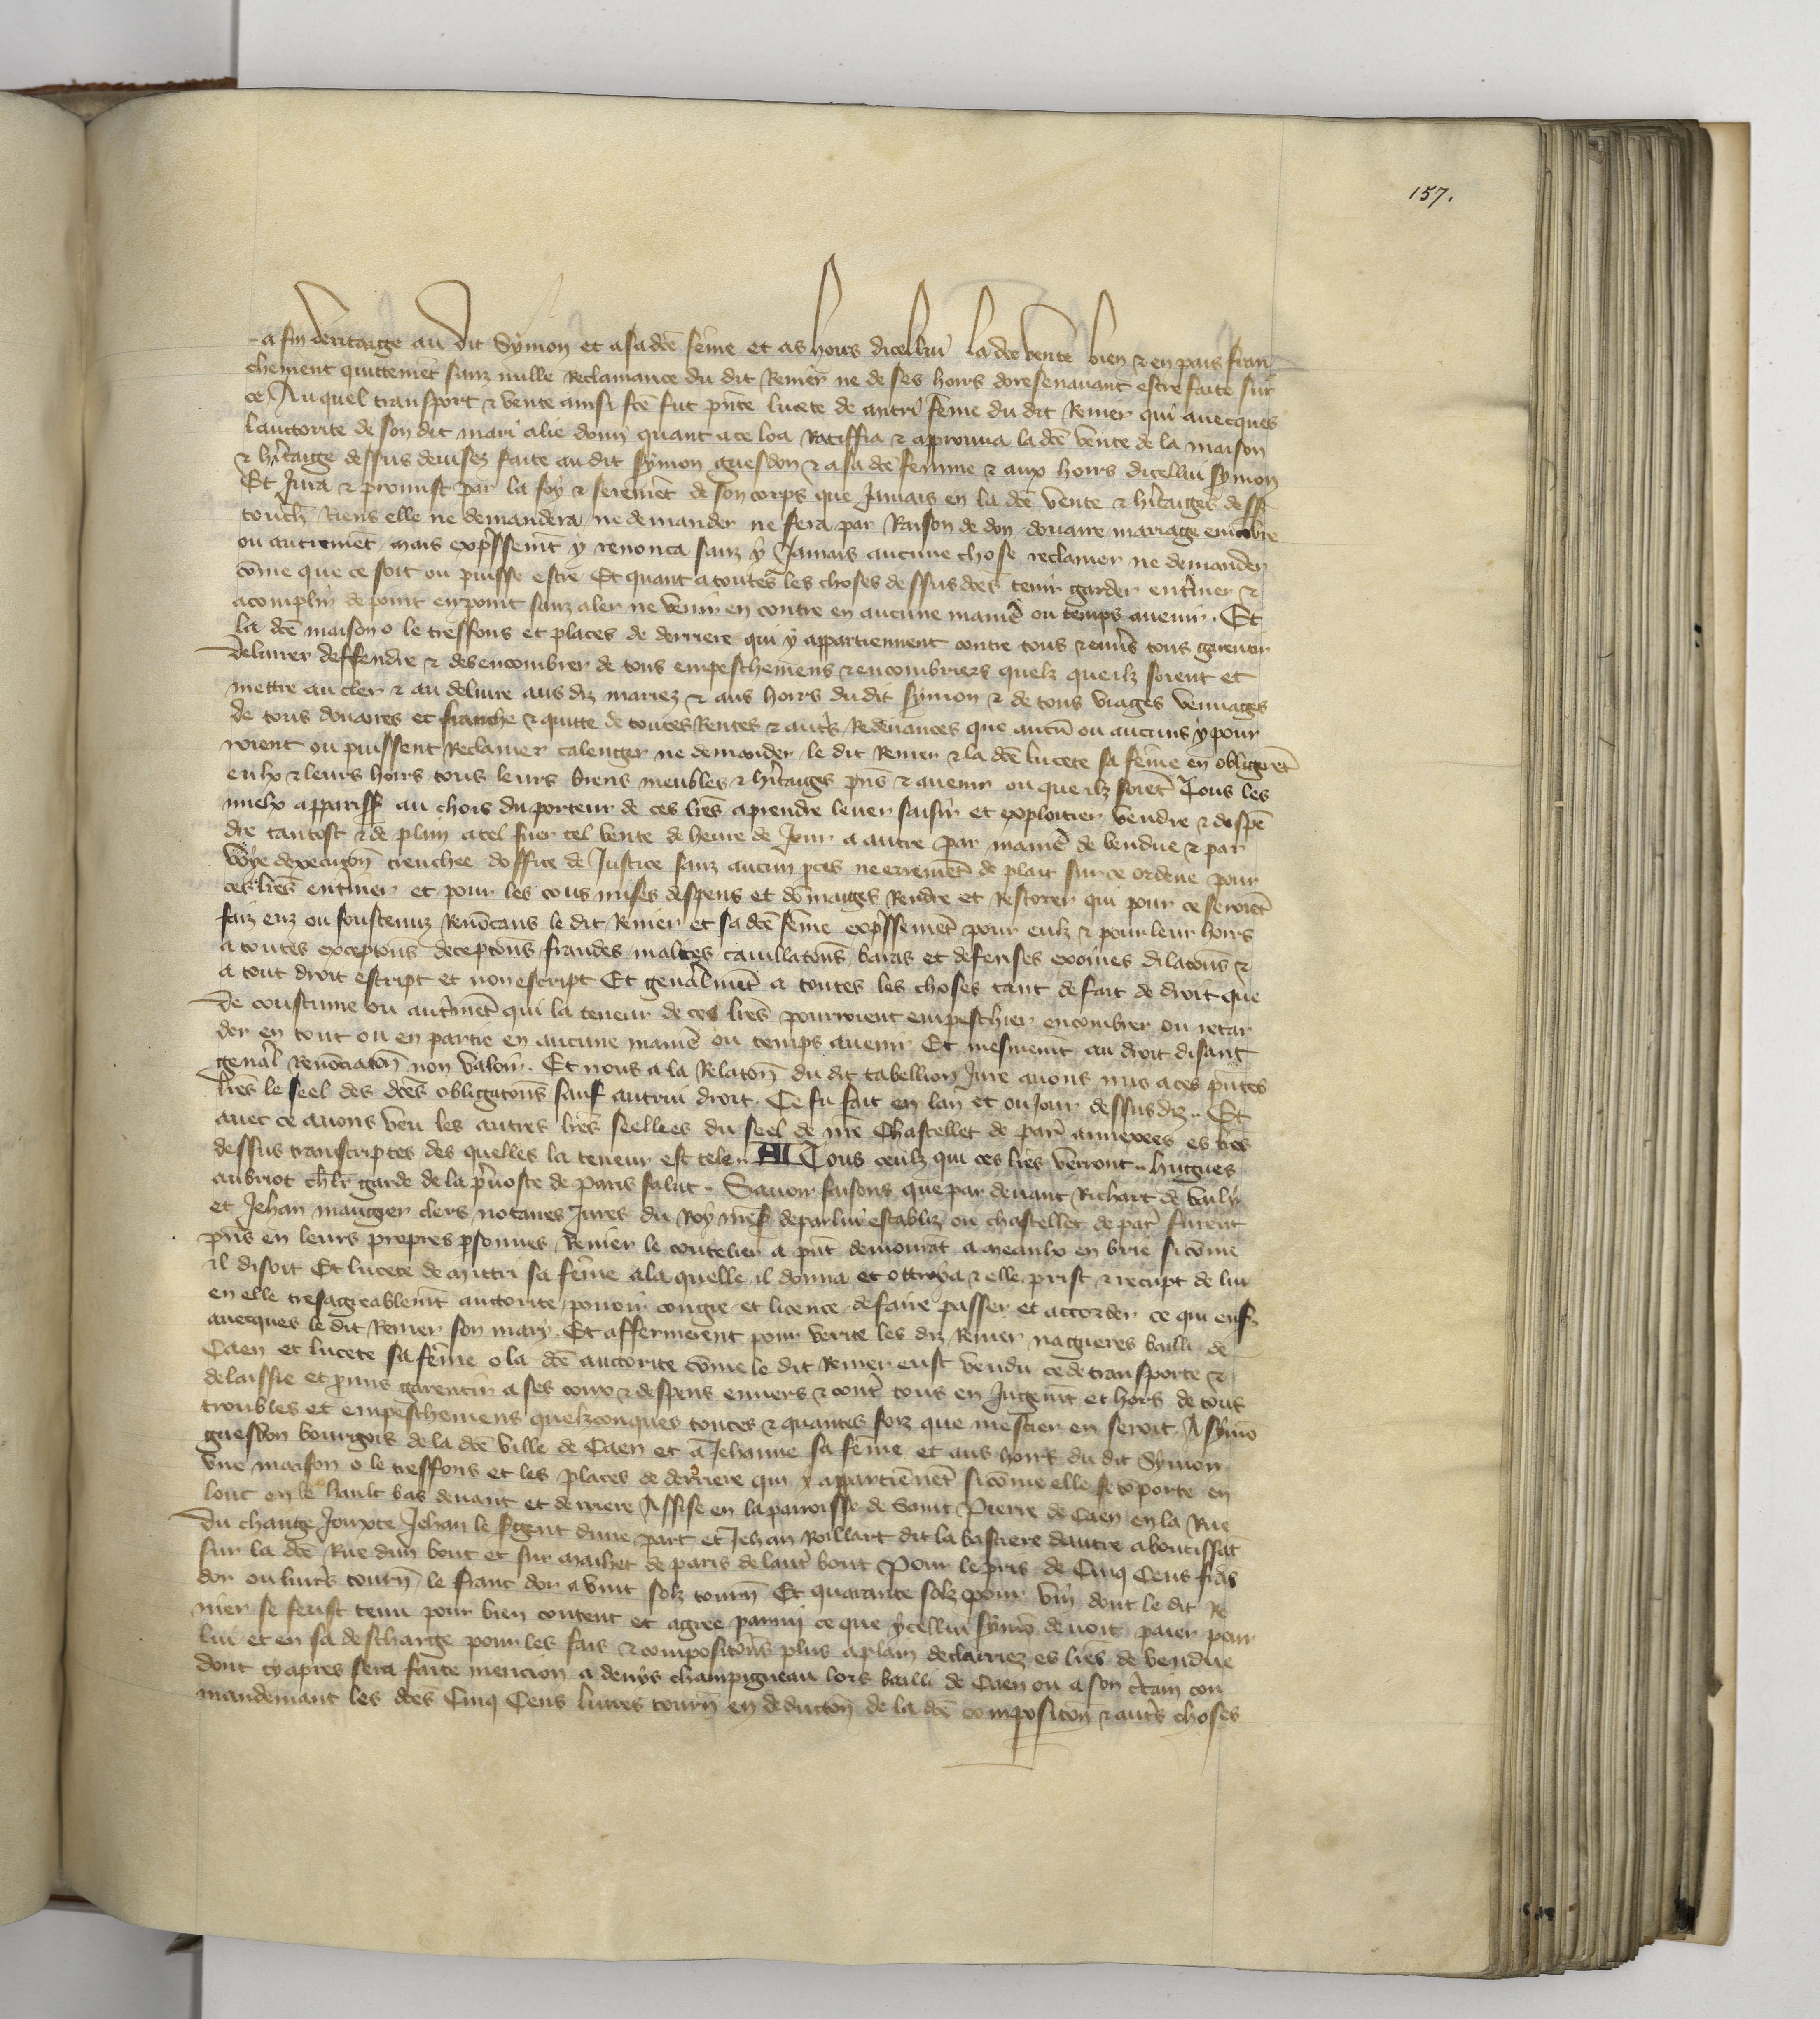 157.
a fin deritaige au dit Symon et a sa dcē fēme et as hoirs dicellui la dcē vente bien & en pais fran
chement quittemēt sanz nulle Reclamance du dit Renier ne de ses hoirs doresenavant estre faite sur
ce Auquel transport & vente ainsi fcē fut pn̄te lucete de mitri fēme du dit Renier qui avecques
lauctorite de son dit mari a lie donn quant a ce loa Ratiffia & aprouva la dcē vente de la maison
& hītaige dessus devisez faite au dit Symon guesdon & a sa dcē femme & aux hoirs dicellui Symon
Et Jura & promist par la foy & seremēt de son corps que Jamais en la dcē vente & hītaiges dess
touch Riens elle ne demandera ne demander ne fera par Raison de don douaire mariage encōbre
ou autremēt mais exp̄ssemt y renonca sanz y Jamais aucune chose reclamer ne demander
cōme que ce soit ou puisse estre Et quant a toutes les choses dessus dcēs tenir garder entīner &
acomplir de point en point sanz aler ne venir en contre en aucune maniē ou temps avenir. Et
la dcē maison o le treffons et places de derriere qui y appartiennent contre tous & envs tous garentir
delivrer deffendre & desencombrer de tous empeschemens & encombriers quelz queilz soient et
mettre au cler & au delivre aus diz mariez & aus hoirs du dit Symon & de tous viages venuages
de tous douaires et franche & quitte de toutes Rentes & auts Redevances que aucū ou aucuns y pour
roient ou puissent Reclamer calenger ne demander le dit Renier & la dcē lucete sa fēme en obligerēt
eulx & leurs hoirs tous leurs biens meubles & hītaiges pn̄s & avenir ou que ilz soiēt Tous les
mielx appariss au chois du porteur de ces lrēs a prendre lever saisir et exploitier vendre & despē
dre tantost & de plain a tel fuer tel vente de heure de Jour a autre par maniē de vendue & par
voye dexecucōn trenchee doffice de Justice sanz aucun pces ne erremēt de plait sur ce ordene pour
ces lrēs entīner et pour les cous mises despens et dōmaiges Rendre et Restorer qui pour ce seroiēt
faiz euz ou soustenuz Renōcans le dit Renier et sa dcē fēme exp̄ssemēt pour eulx & pour leur hoirs
a toutes excepcōns decepcōns fraudes malices cavillacōns baras et defenses exoines dilacōns &
a tout droit escript et non escript Et genalmēt a toutes les choses tant de fait de droit que
de coustume ou autmēt qui la teneur de ces lrēs pourroient empeschier encombrer ou retar
der en tout ou en partie en aucune maniē ou temps avenir Et mesmemt au droit disant
genal renōciacōn non valoir. Et nous a la Relacōn du dit tabellion Jure avons mis a ces pn̄tes
lrēs le seel des dcēs obligacōns sauf autrui droit. Ce fu fait en lan et ou Jour dessus diz. Et
avec ce avons veu les autres lrēs seellees du seel de nrē Chastellet de par̄ annexees es lrēs
dessus transcriptes des quelles la teneur est tele. A Tous ceulx qui ces lrēs verront. hugues
aubriot chlr garde de la p̄voste de paris salut. Savoir faisons que par devant Richart de vaily
et Jehan maugier clers notaires Jures du Roy nres de par lui establiz ou chastellet de par̄ furent
pn̄s en leurs propres psonnes Renier le coutelier a pn̄t demourāt a meaulx en brie si cōme
il disoit Et lucete de mittri sa fēme a la quelle il donna et ottroya & elle prist & recupt de lui
en elle tresagreablemt auctorite povoir congie et licence de faire passer et accorder ce qui ensz
avecques le dit Renier son mary. Et affermerent pour verite les diz Renier nagueres bailli de
Caen et lucete sa fēme o la dcē auctorite cōme le dit Renier eust vendu cede transporte &
delaissie et pmis garentir a ses coux & despens envers & cont tous en Jugemt et hors de tous
troubles et empeschemens quelzconques toutes & quantes foiz que mestier en seroit A Symō
guesdon bourgois de la dcē ville de Caen et a Jehanne sa fēme et aus hoirs du dit Symon
une maison o le treffons et les places de derriere qui y appartiēnēt si cōme elle se cōporte en
lonc en le hault bas devant et derriere Assise en la parroisse de Saint Pierre de Caen en la Rue
du change Jouxte Jehan le sgent dune part et Jehan Roillart dit la bastiere dautre aboutissāt
sur la dcē Rue dun bout et sur mailhet de paris de laut bout Pour le pris de Cinq Cens frās
dor ou livrs tourn le franc dor a vint solz tourn Et quarante solz pour vin dont le dit Re
nier se feust tenu pour bien content et agree parmi ce que ycellui Symō devoit paier pour
lui et en sa descharge pour les fais & composicōns plus a plain declairiez es lrēs de vendue
dont cy apres sera faite mencion a denys champigneau lors bailli de Caen ou a son ctain com
mandemant les dcēs Cinq Cens livres tourn en deducōn de la dcē composicōn & auts choses